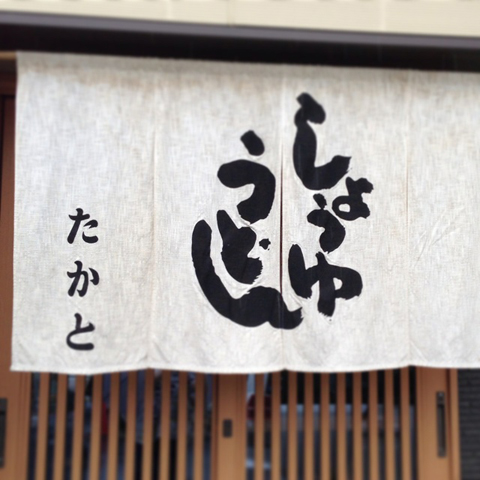 しょうゆ
うどん
たかと